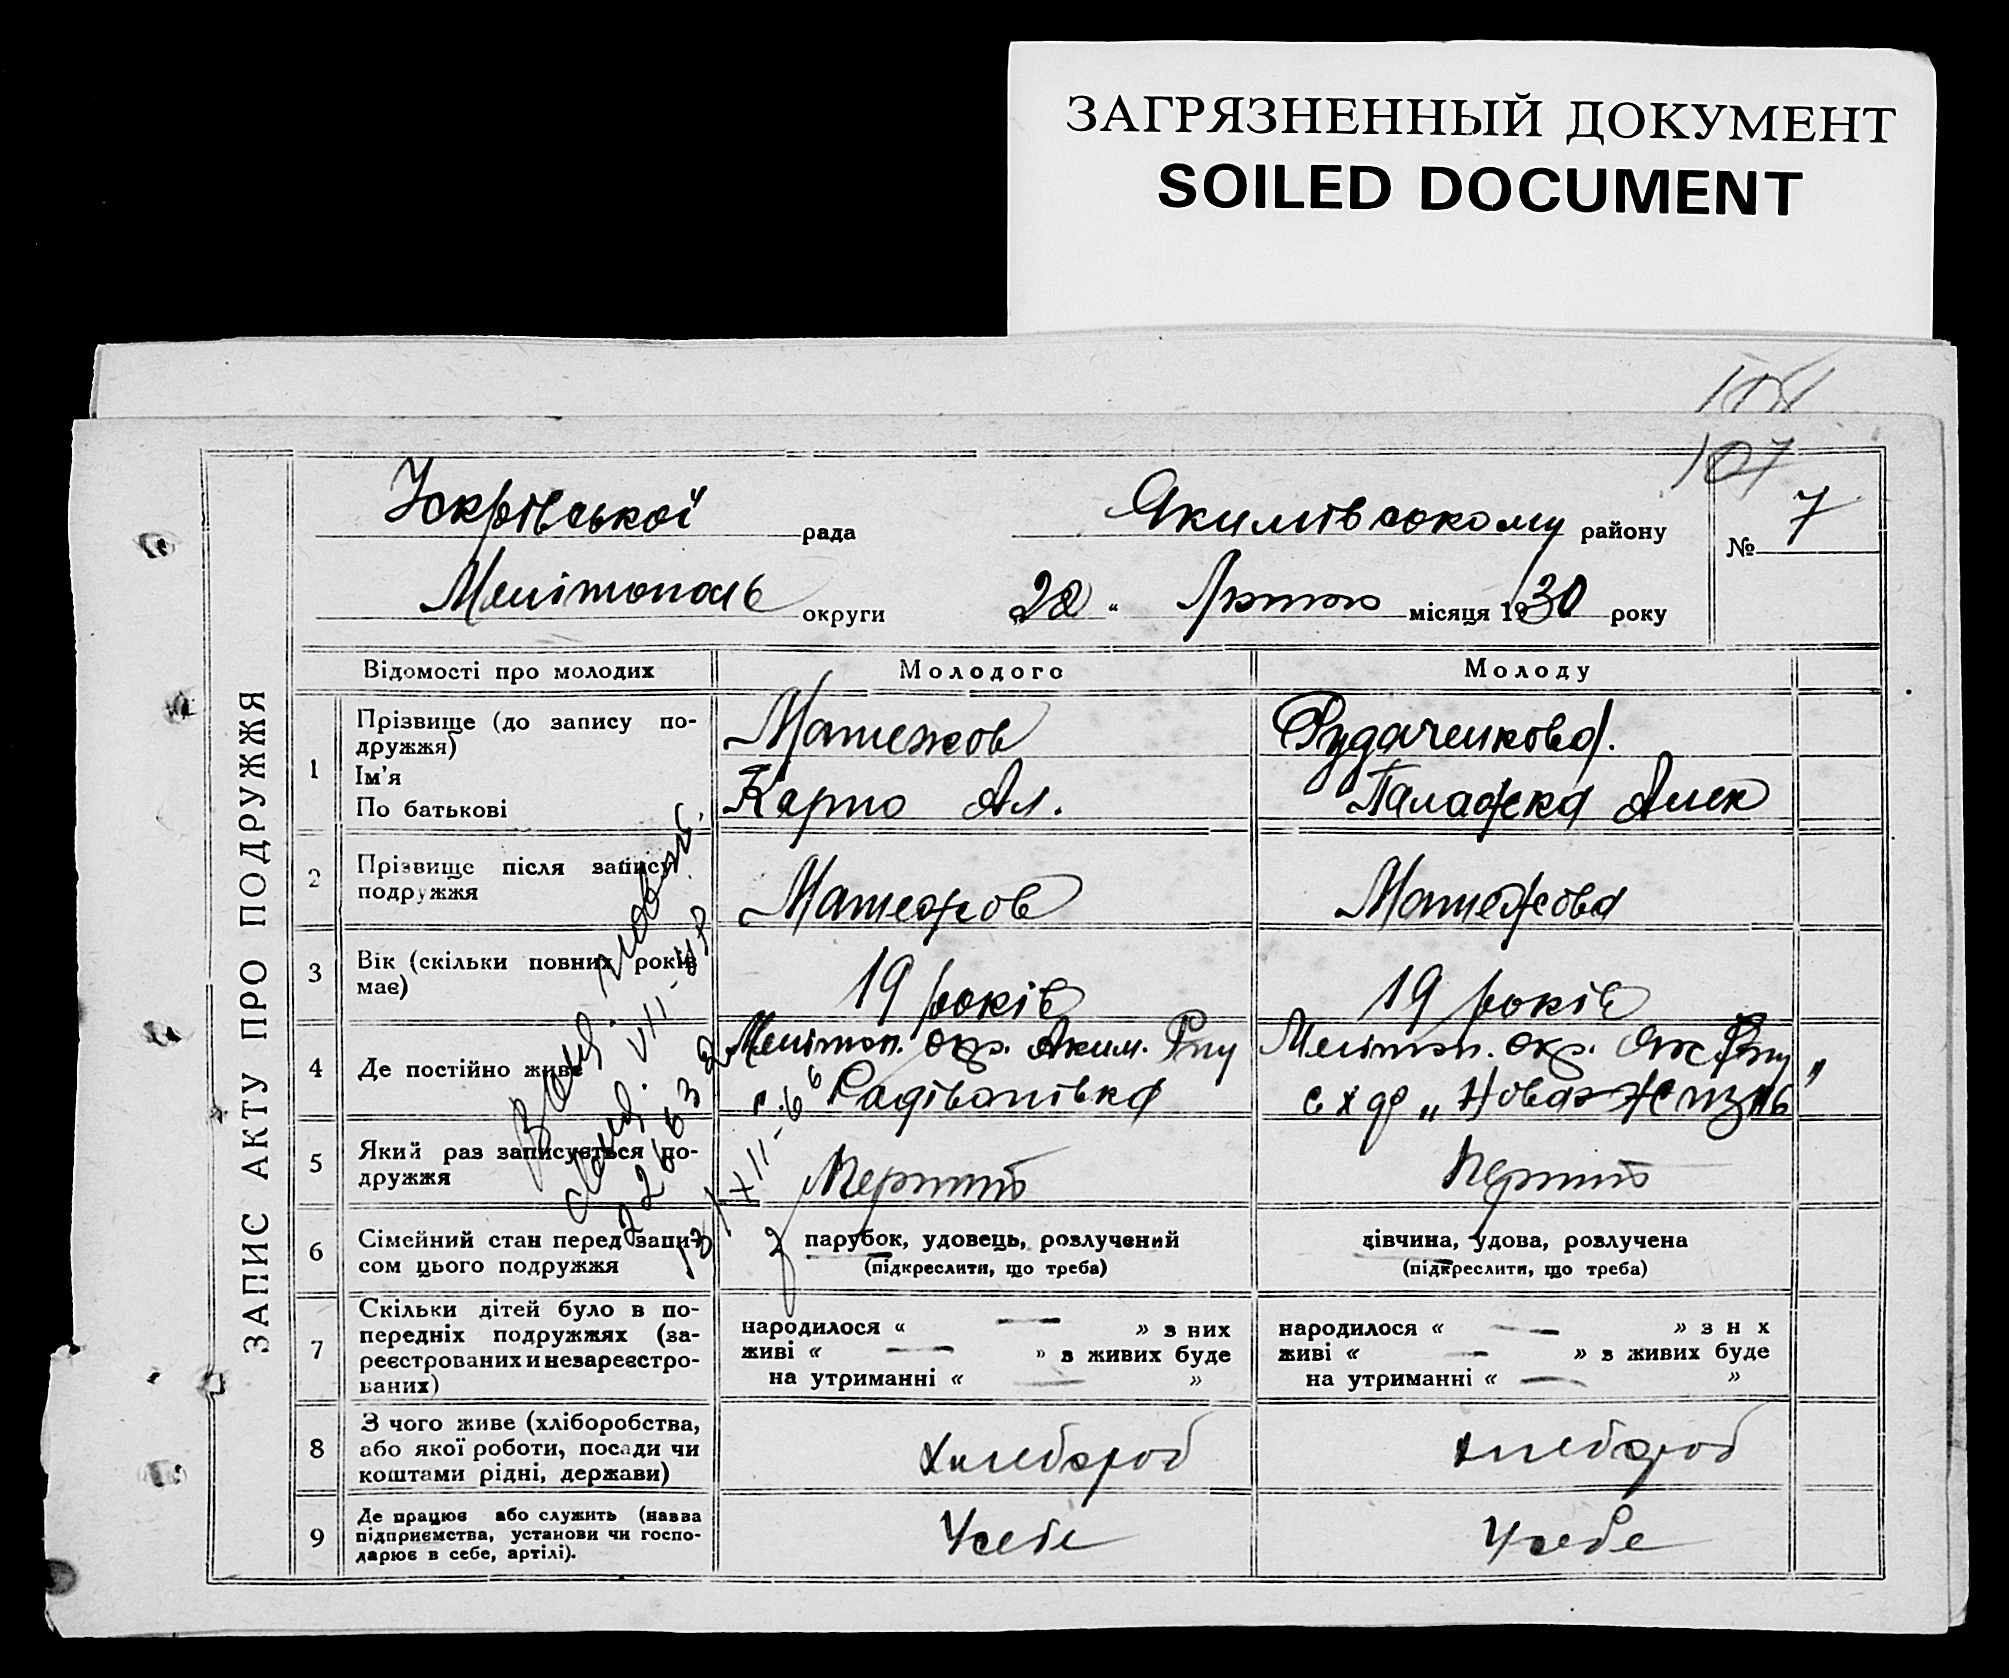 ЗАГРЯЗНЕННЫЙ ДОКУМЕНТ
SOILED DOCUMENT
107
ЗАПИС АКТУ ПРО ПОДРУЖЖЯ
рада Якимівському району
№ 7
Мелітополь округи „22“ Лютого місяця 1930 року
Відомості про молодих Молодого Молоду
1 Прізвище (до запису по-
дружжя)
Ім'я
По батькові
Матежов
Карпо Ал.
Рудаченкова.
Палажка Алек
2 Прізвище після запису
подружжя
Матежов
Матежова
3 Вік (скільки повних років
має)
19 років
19 років
4 Де постійно живе
Мелітоп. Окр. Аким. Р-ну
с. Радівонівка
Мелітоп. Окр. Як Р-ну
с х др „Новая Жизнь"
5 Який раз записується по-
дружжя
6 Сімейний стан перед запи-
сом цього подружжя
парубок, удовець, розлучений
(підкреслити, що треба)
дівчина, удова, розлучена
(підкреслити, що треба)
7 Скільки дітей було в по-
передніх подружжях (за-
реєстрованих и незареєстро-
ваних)
народилося « — » з них
живі « — » з живих буде
на утриманні « — »
народилося « — » з н х
живі « — » з живих буде
на утриманні « — »
8 З чого живе (хліборобства,
або якої роботи, посади чи
коштами рідні, держави)
хлебороб
хлебороб
9 Де працює або служить (назва
підприємства, установи чи госпо-
дарює в себе, артілі).
У себе
У себе